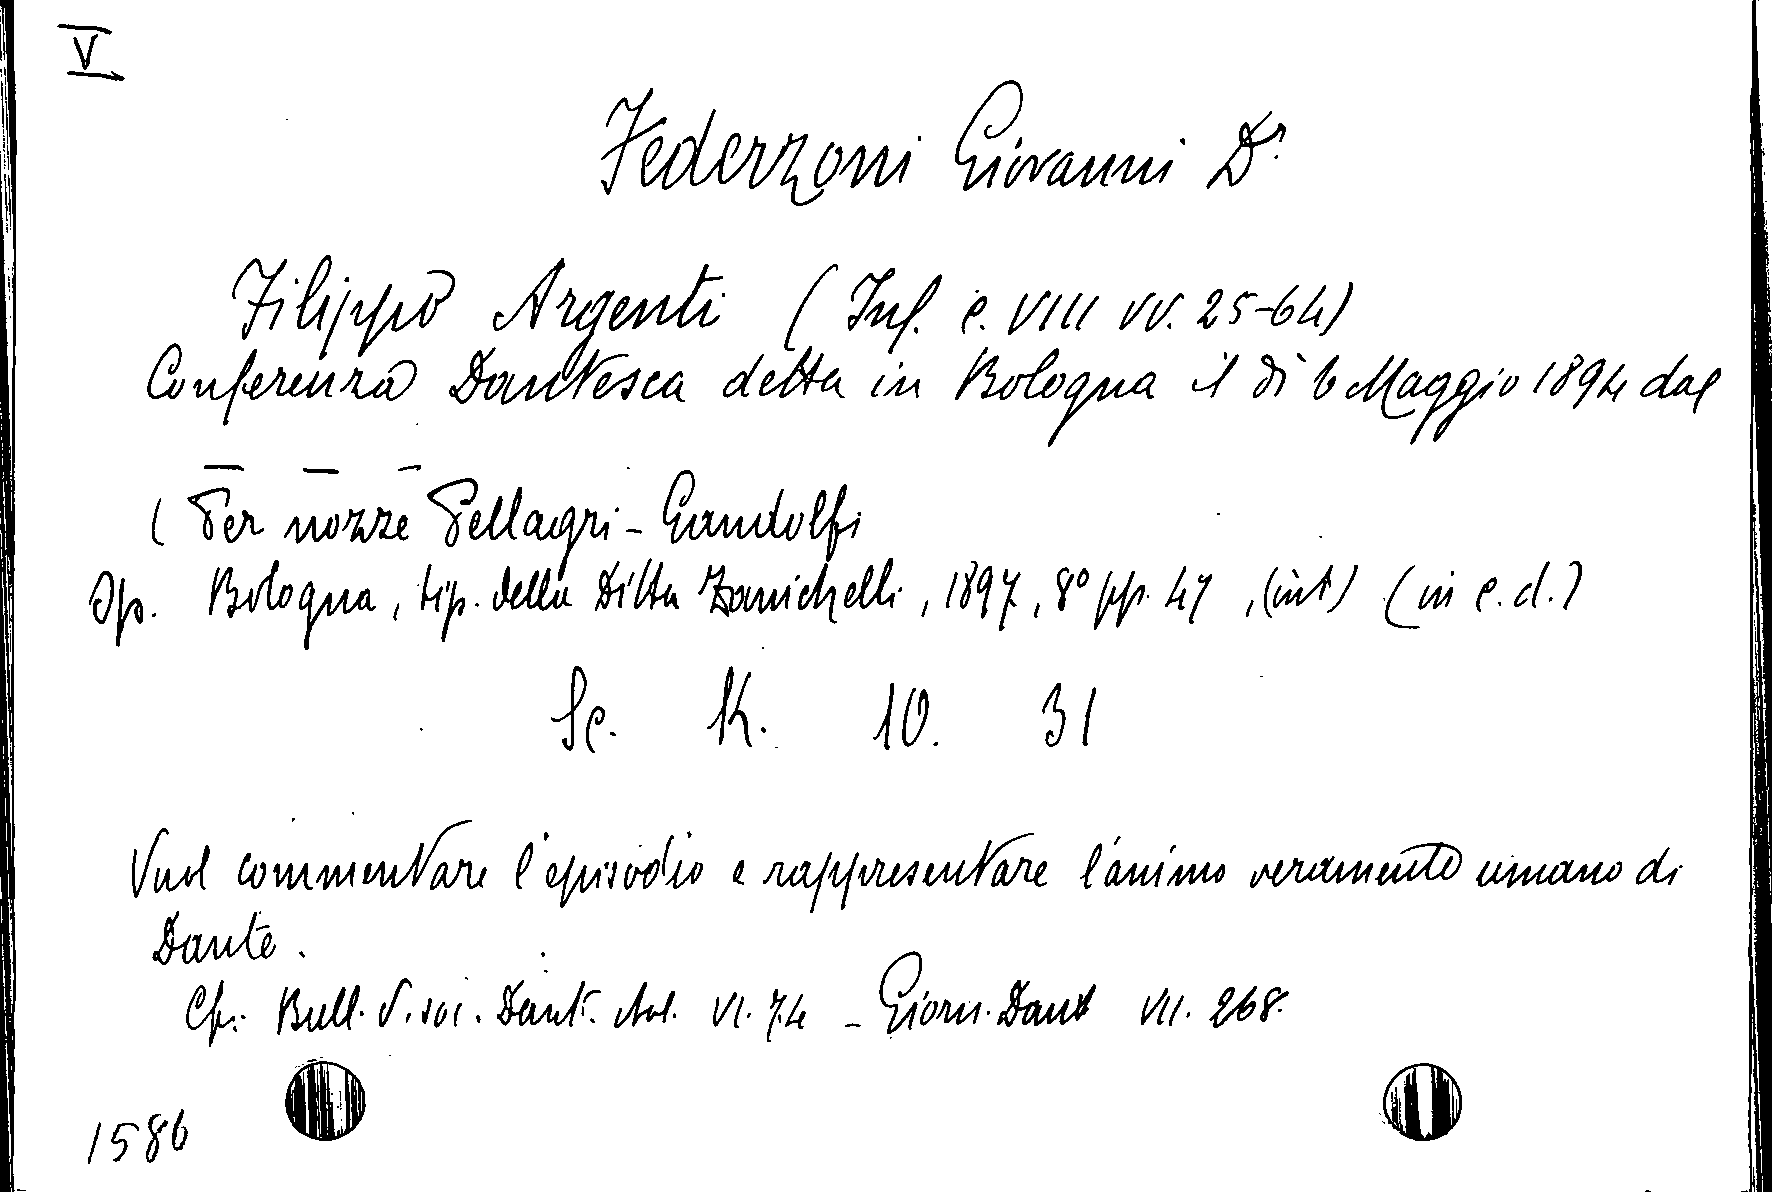 V
Federzoni Giovanni Dr
Filippo Argenti (Inf. c. VIII vv. 25-64)
Conferenza Dantesca detta in Bologna il dì 6 Maggio 1894 dal
— — —
(Per nozze Pellagri - Gandolfi
Op. Bologna, tip. della Ditta Zanichelli, 1897, 8° pp. 47, (int) (in c. d.)
Sc. K. 10. 31
Vuol commentare l'episodio e rappresentare l'animo veramente umano di
Dante.
Cfr: Bull. d. soc. Dant. Ital. VI. 74 - Giorn. Dant VII. 268.
1586